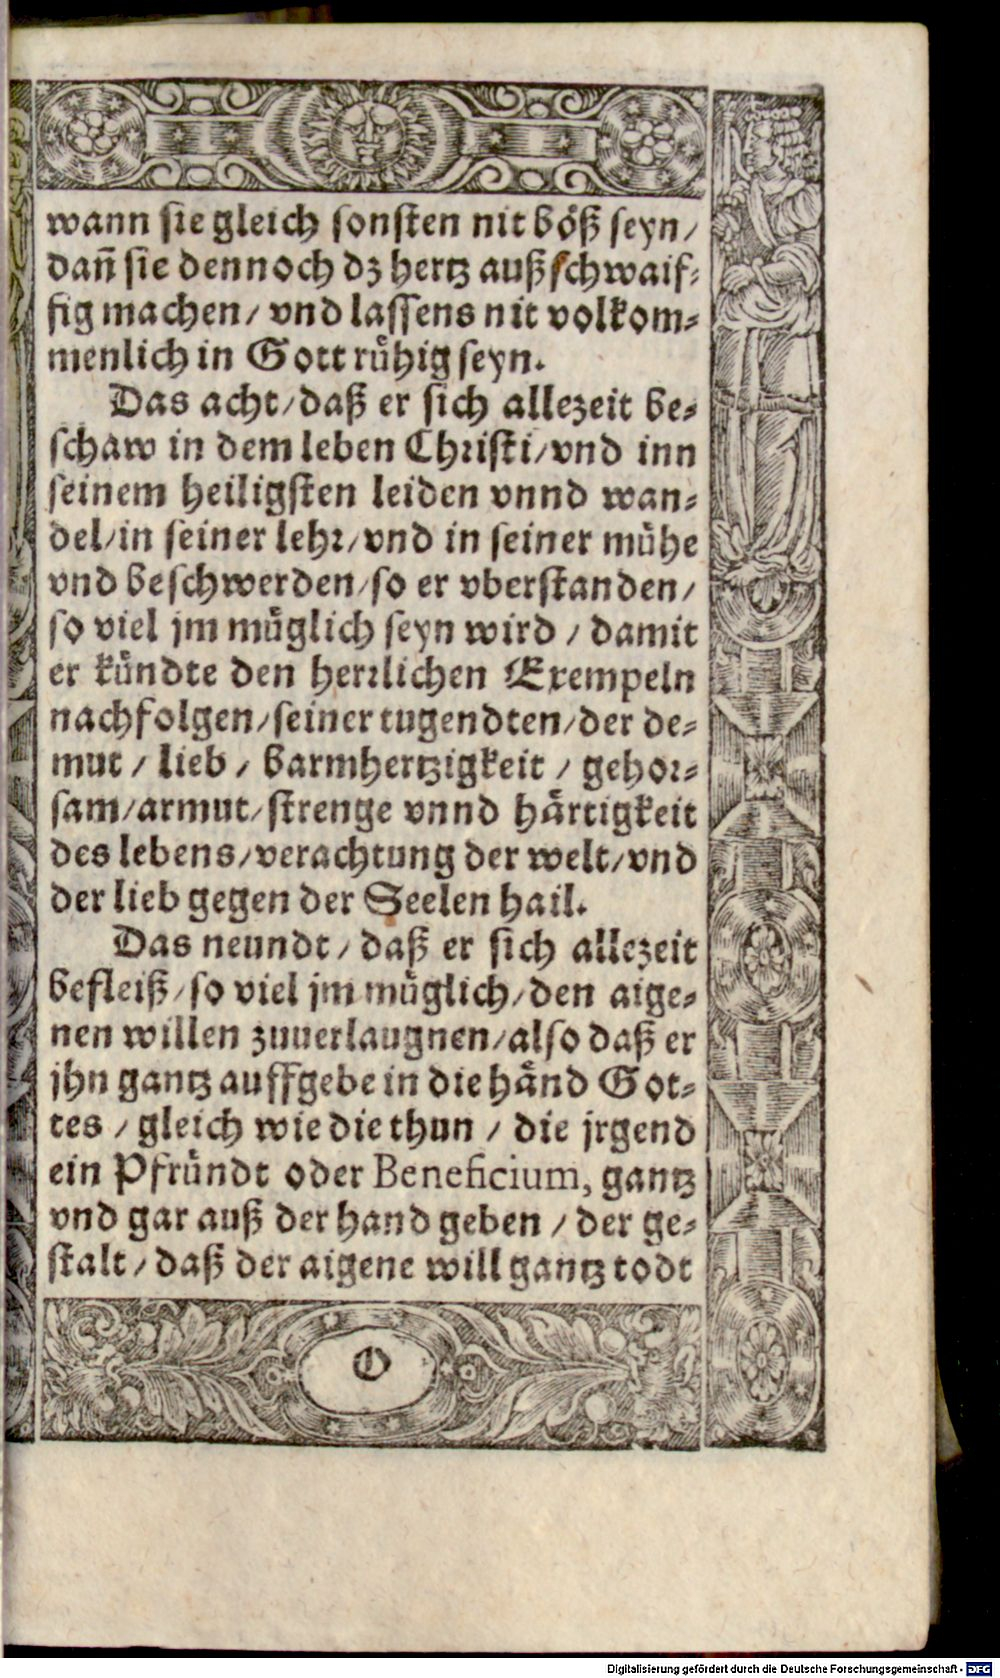 wann sie gleich sonsten nit böß seyn/
dañ sie dennoch dz hertz außschwaif⸗
fig machen/ vnd lassens nit volkom⸗
menlich in Gott rühig seyn.
Das acht/ daß er sich allezeit be⸗
schaw in dem leben Christi/ vnd inn
seinem heiligsten leiden vnnd wan⸗
del/ in seiner lehr/ vnd in seiner mühe
vnd beschwerden/ so er vberstanden/
so viel jm müglich seyn wird / damit
er kündte den herrlichen Exempeln
nachfolgen/ seiner tugendten/ der de⸗
mut / lieb / barmhertzigkeit / gehor⸗
sam/ armut/ strenge vnnd härtigkeit
des lebens/ verachtung der welt/ vnd
der lieb gegen der Seelen hail.
Das neundt / daß er sich allezeit
befleiß/ so viel jm müglich/ den aige⸗
nen willen zuuerlaugnen/ also daß er
jhn gantz auffgebe in die händ Got⸗
tes / gleich wie die thun / die jrgend
ein Pfründt oder Beneficium, gantz
vnd gar auß der hand geben / der ge⸗
stalt / daß der aigene will gantz todt
O
Digitalisierung gefördert durch die Deutsche Forschungsgemeinschaft - DFG